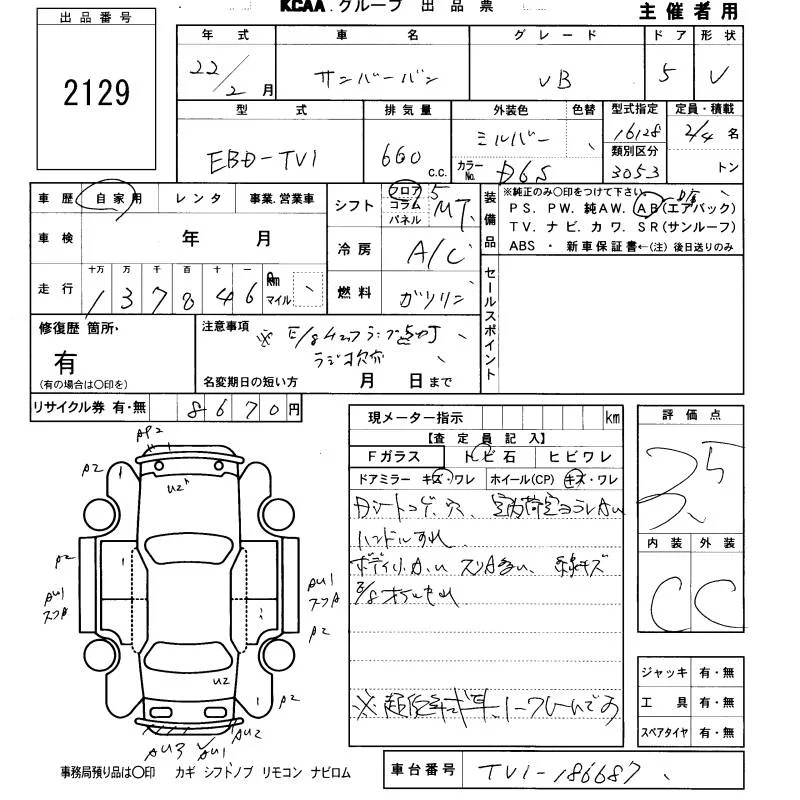 KCAA. グループ 出品票
主催者用
出品番号
2129
年式
22/2月
車名
サンバーバン
グレード
VB
ドア
5
形状
V
型式
EBD-TV1
排気量
660 c.c.
外装色
シルバー
色替
カラーNo.
D6S
型式指定
16128
類別区分
3053
定員・積載
2/4名
トン
車歴
自家用
レンタ
事業.営業車
車検
年 月
走行
十万 万 千 百 十 一
137846
Km
マイル
シフト
フロア
コラム
パネル
5
MT
冷房
A/C
燃料
ガソリン
装備品
※純正のみ○印をつけて下さい.
PS. PW. 純AW. AB(エアバック)
TV. ナビ. カワ. SR(サンルーフ)
ABS ・ 新車保証書←(注) 後日送りのみ
セールスポイント
修復歴 箇所・
有
(有の場合は○印を)
注意事項
ラジオ欠品
名変期日の短い方 月 日まで
リサイクル券 有・無
8670円
現メーター指示
km
【査定員記入】
Fガラス
トビ石
ヒビワレ
ドアミラー キズ・ワレ
ホイール(CP) キズ・ワレ
ハンドルすれ
評価点
3.5
内装
外装
C
C
ジャッキ 有・無
工具 有・無
スペアタイヤ 有・無
AP2
A2
U2
A2
A2
AU1
スフA
AU1
スフA
A2
U2
A2
AU3
AU1
AU2
事務局預り品は○印 カギ シフトノブ リモコン ナビロム
車台番号
TV1-186687